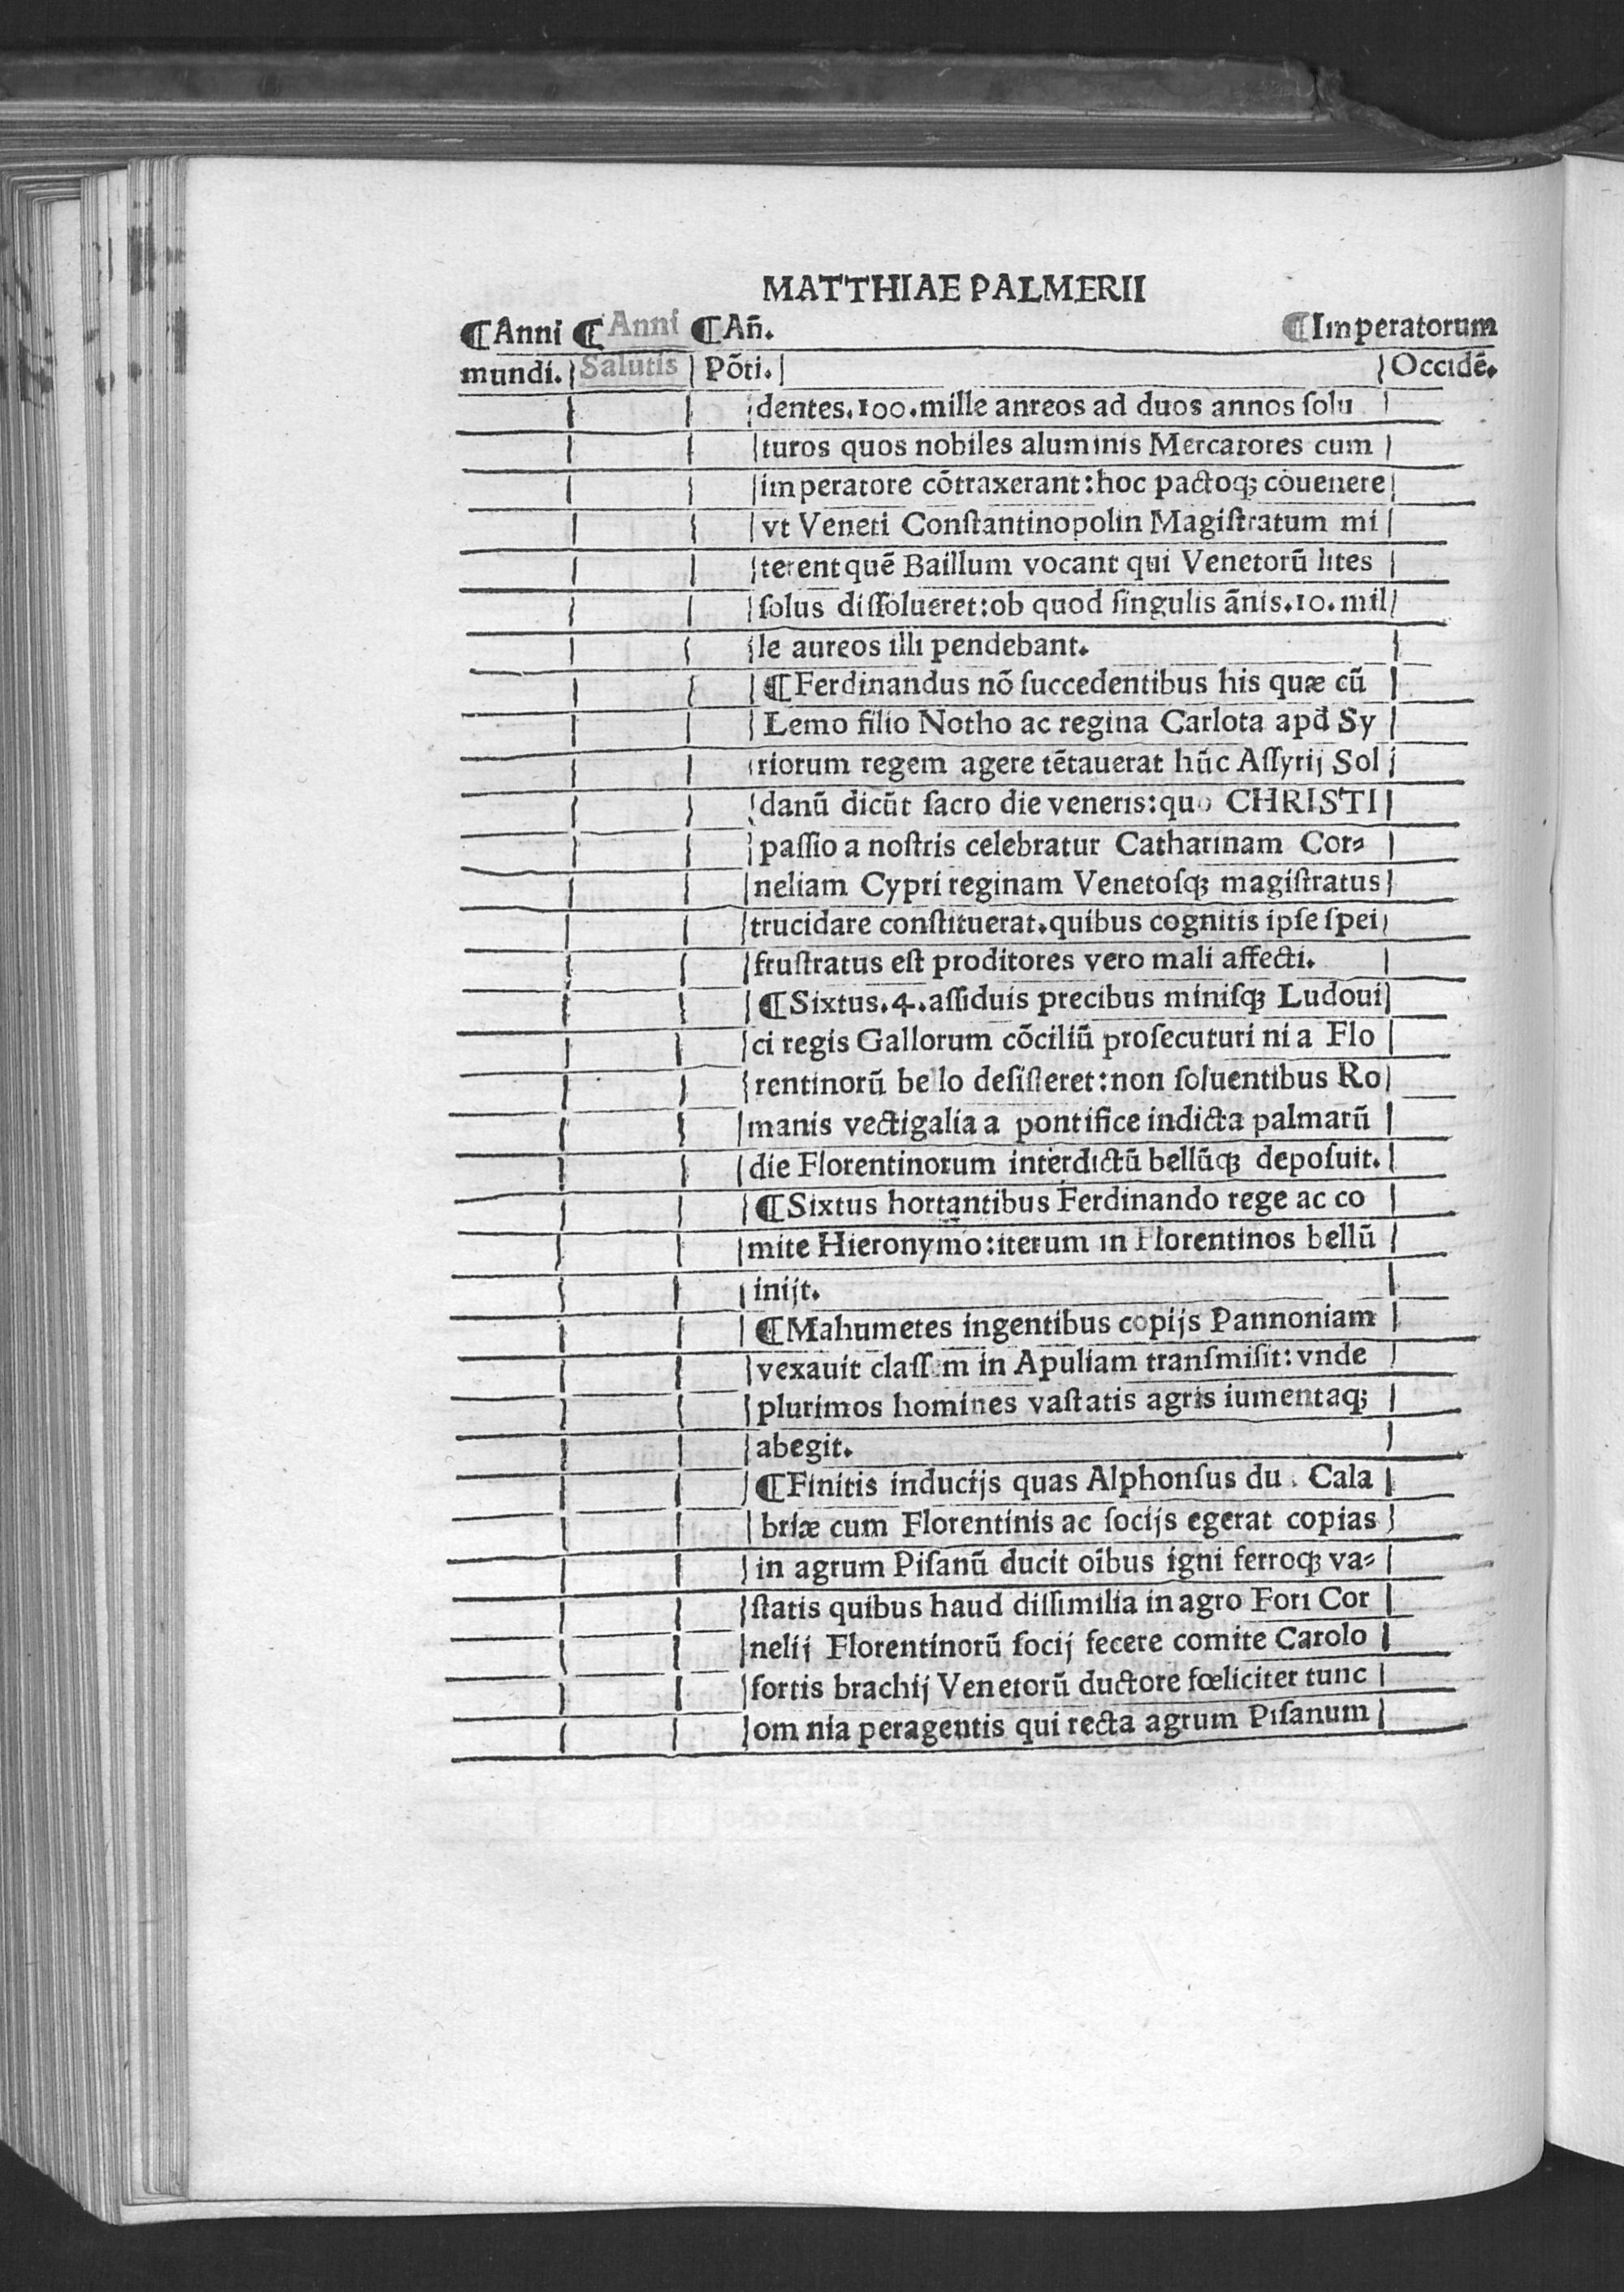 MATTHIAE PALMERII
¶Anni ¶Anni ¶An̄. ¶Imperatorum
mundi. Salutis Põti. Occidē.
dentes.100.mille anreos ad duos annos ſolu
turos quos nobiles aluminis Mercatores cum
imperatore cõtraxerant:hoc pactoqꝫ couenere
vt Veneti Conſtantinopolin Magiſtratum mi
terent quē Baillum vocant qui Venetorū lites
ſolus diſſolueret:ob quod ſingulis ãnis.10.mil
le aureos illi pendebant.
¶Ferdinandus nõ ſuccedentibus his quæ cū
Lemo filio Notho ac regina Carlota apđ Sy
riorum regem agere tētauerat hūc Aſſyrij Sol
danū dicūt ſacro die veneris:quo CHRISTI
paſſio a noſtris celebratur Catharinam Cor⸗
neliam Cypri reginam Venetoſqꝫ magiſtratus
trucidare conſtituerat.quibus cognitis ipſe ſpei
fruſtratus eſt proditores vero mali affecti.
¶Sixtus.4.aſſiduis precibus miniſqꝫ Ludoui
ci regis Gallorum cõciliū proſecuturi ni a Flo
rentinorū bello deſiſteret:non ſoluentibus Ro
manis vectigalia a pontifice indicta palmarū
die Florentinorum interdictū bellūqꝫ depoſuit.
¶Sixtus hortantibus Ferdinando rege ac co
mite Hieronymo:iterum in Florentinos bellū
inijt.
¶Mahumetes ingentibus copijs Pannoniam
vexauit claſſem in Apuliam tranſmiſit:vnde
plurimos homines vaſtatis agris iumentaqꝫ
abegit.
¶Finitis inducijs quas Alphonſus du Cala
briæ cum Florentinis ac ſocijs egerat copias
in agrum Piſanū ducit oībus igni ferroqꝫ va⸗
ſtatis quibus haud diſſimilia in agro Fori Cor
nelij Florentinorū ſocij fecere comite Carolo
fortis brachij Venetorū ductore fœliciter tunc
om nia peragentis qui recta agrum Piſanum